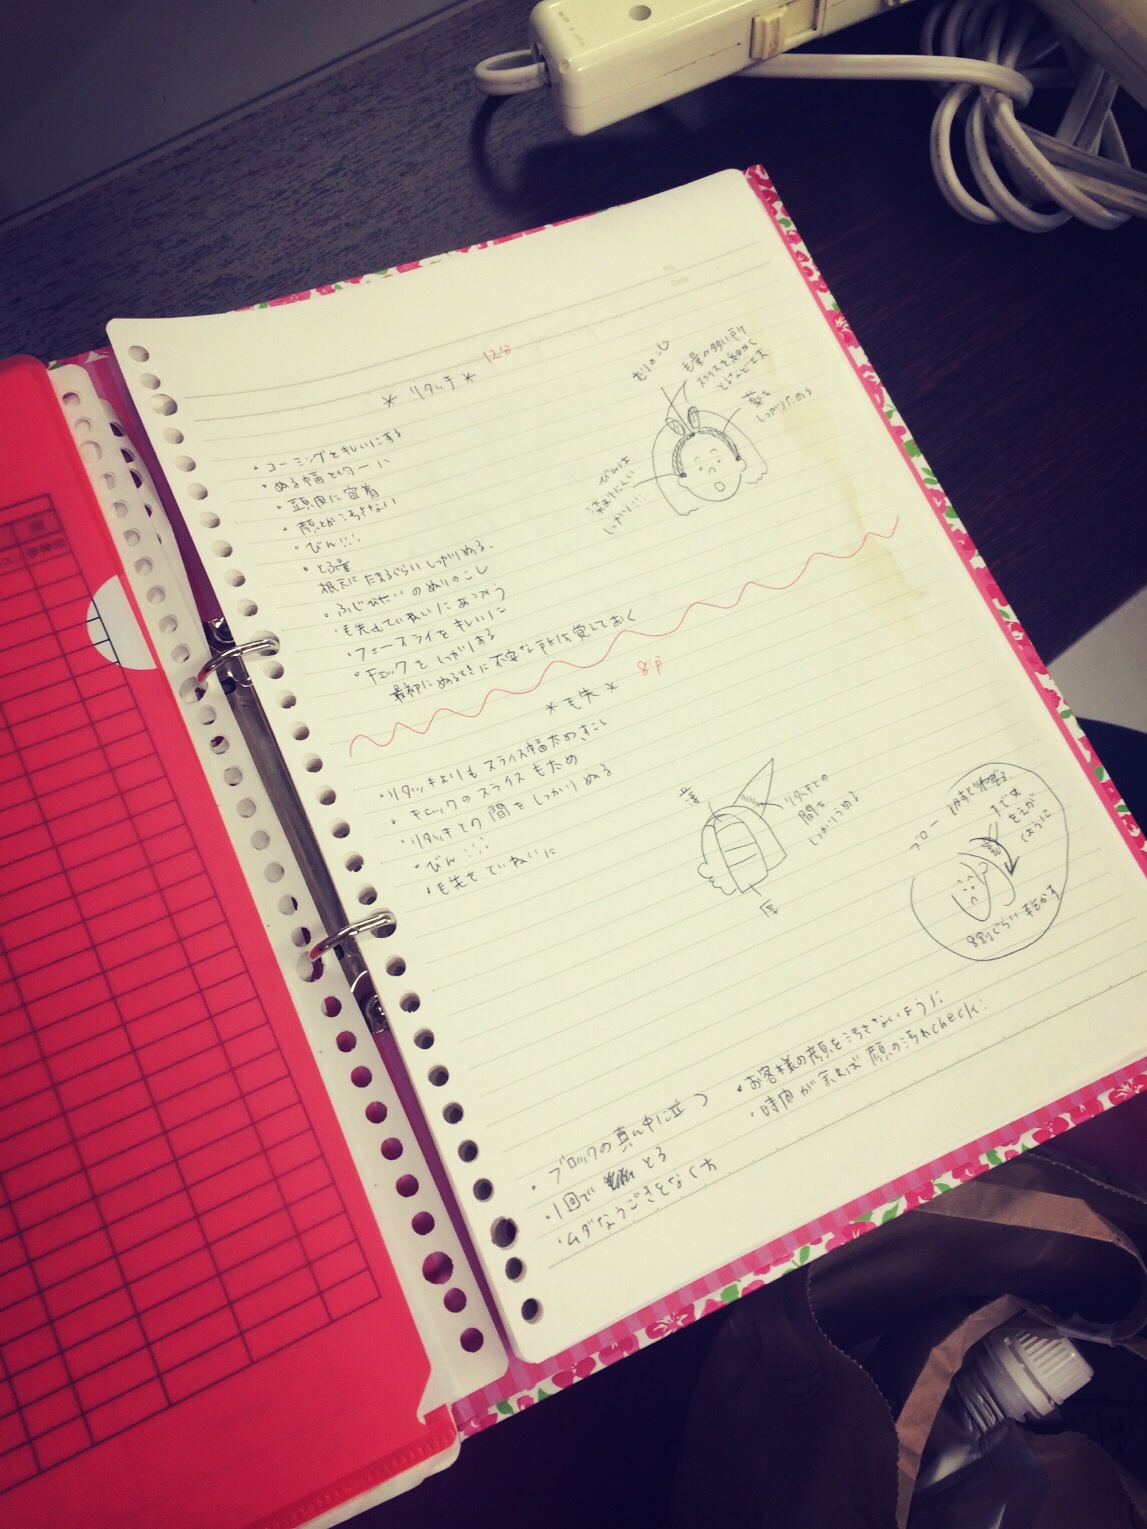 No.
Date
＊リタッチ＊ 12分
・コーミングをキレイにする
・ぬる幅を均一に
・頭皮に密着
・顔とか汚さない
・びん!!!
・とふ量
根元にたまるぐらいしっかりぬる、
・ふじびたいのぬりのこし
・毛先もていねいにあつかう
・フェースラインをキレイに
・チェックをしっかりする
最初にぬるときに不安な所は覚えておく
むりのこし
毛量の多い所は
スライスを細かく
薬を
しっかりためる
びんは
染まりにくい
しっかり!!!
＊毛先＊ 8分
・リタッチよりもスライス幅太めすこし
・チェックのスライスも太め
・リタッチとの間をしっかりぬる
・びん!!!
・毛先をていねいに
薄
リタッチとの
間を
しっかりうめる
厚
ブロー
8割ぐらい乾かす
・ブロックの真ん中に立つ
・1回でとる
・ムダなうごきをなくす
・お客様の顔を汚さないように
・時間が余れば顔の汚れcheck!